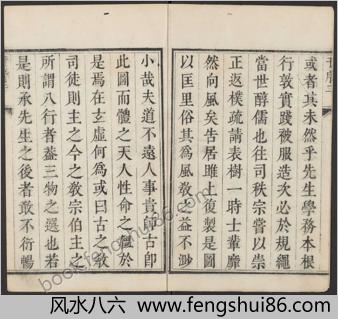 或者其未然乎先生學務本根
行敦實踐被服造次必於規繩
當世醇儒也往司秩宗嘗以崇
正返樸疏請表樹一時士鞏靡
然向風矣吿居雎上復製是圖
以匡里俗其為風敎之益不渺
小哉夫道不遠人事貴師古卽
此圖而體之天人性命之懿於
是焉在玄虛何為或曰古之敎
司徒則主之今之敎宗伯主之
所謂八行者蓋三物之遺也若
是則承先生之後者敢不衍暢
book.fengshui86.com
风水八六 www.fengshui86.com